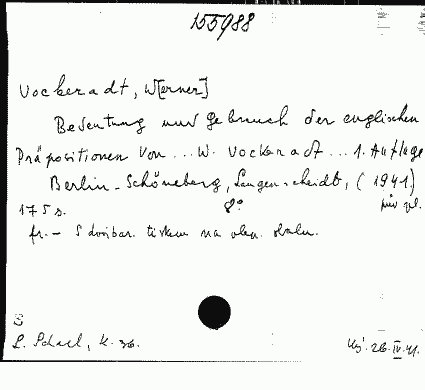 155988
Vockeradt, W[erner]
Bedeutung und Gebrauch der englischen
Präpositionen von ... W. Vockeradt ... 1. Auflage
Berlin-Schöneberg, Langenscheidt, (1941)
175 s. 8° pův. pl.
fr. - S dvojbar. tiskem na
L. Schael, k. 36. 26. IV. 41.